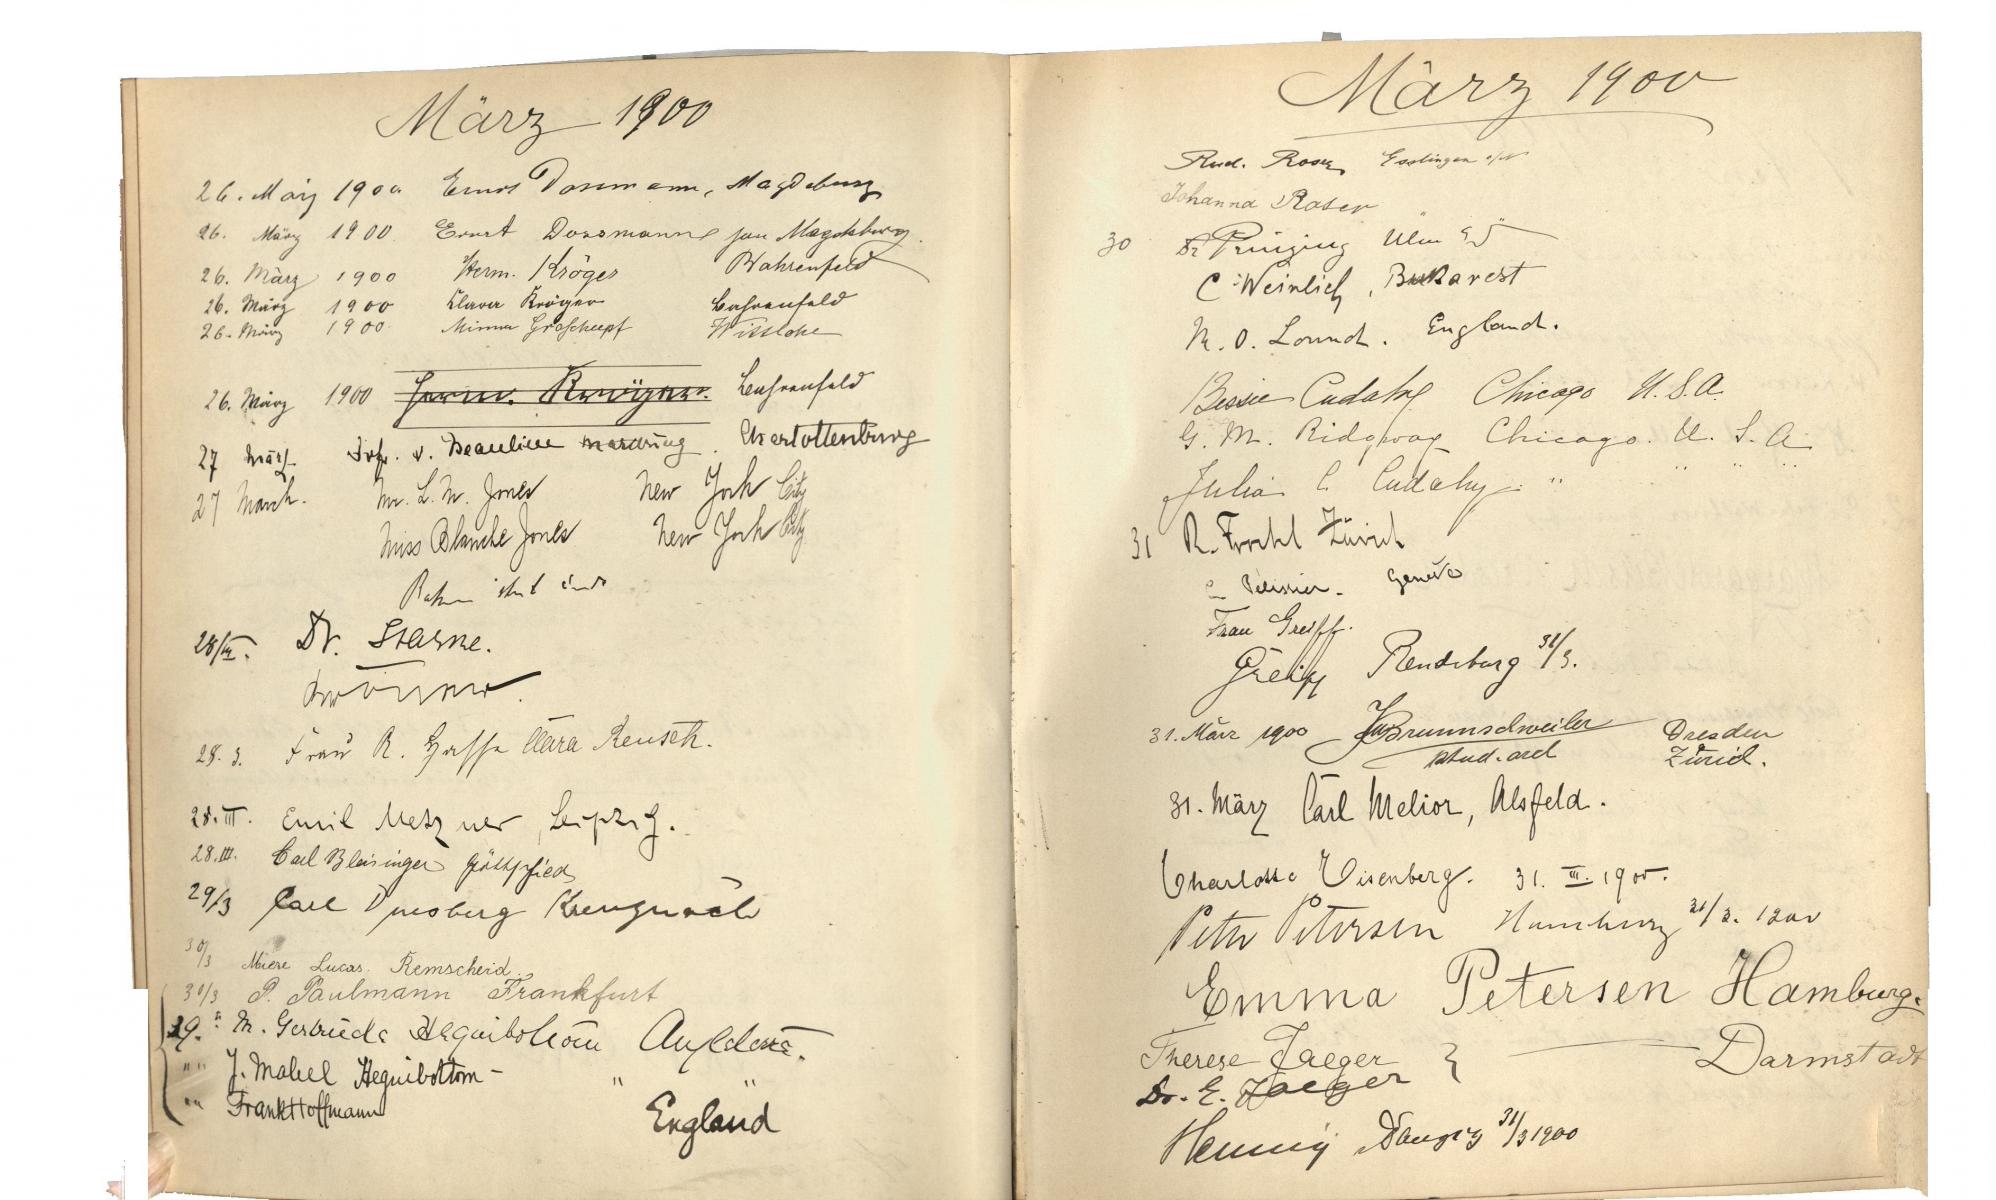 März 1900
26. März 1900 Ernst Dossmann, Magdeburg
26. März 1900 Ernst Dossmann jun Magdeburg.
26. März 1900 Herm. Kröger Bahrenfeld
26. März 1900 Clara Kröger Bahrenfeld
26. März 1900 Minna
26. März 1900 Herm. Kröger. Bahrenfeld
27 März v. Beaulieu Charlottenburg
27 March. Mr. L. M. Jones New York City
Miss Blanche Jones New York City
28/III. Dr. Starke.
28. 3. Frau R. Clara Rensch.
28. III. Emil Metzner, Leipzig.
28. III. Carl Bleisinger
29/3 Carl Duesberg Kreuznach
30/3 Lucas. Remscheid.
30/3 P. Paulmann Frankfurt
29. " M. Gertrude Heguibottom
" " J. Mabel Heguibottom - " "
" " Frank Hoffmann England
März 1900
Rud. Roser Esslingen a/N
Johanna Roser "
30 Dr Prinzing Ulm a/D
C. Weinlich, Bukarest
England.
Bessie Cudahy Chicago U. S. A.
G. M. Ridgway Chicago. U. S. A
Julia C. Cudahy. " " " "
31 Zürich
Pelissier. Genève
Frau Greiff.
Greiff Rendsburg 31/3.
31. März 1900 Brunnschweiler Dresden
stud. arch Zürich.
31. März Carl Melior, Alsfeld.
Charlotte Eisenberg. 31. III. 1900.
Peter Petersen Hamburg 31/3. 1900
Emma Petersen Hamburg.
Therese Jaeger } Darmstadt
Dr. E. Jaeger
Hennig Danzig 31/3 1900